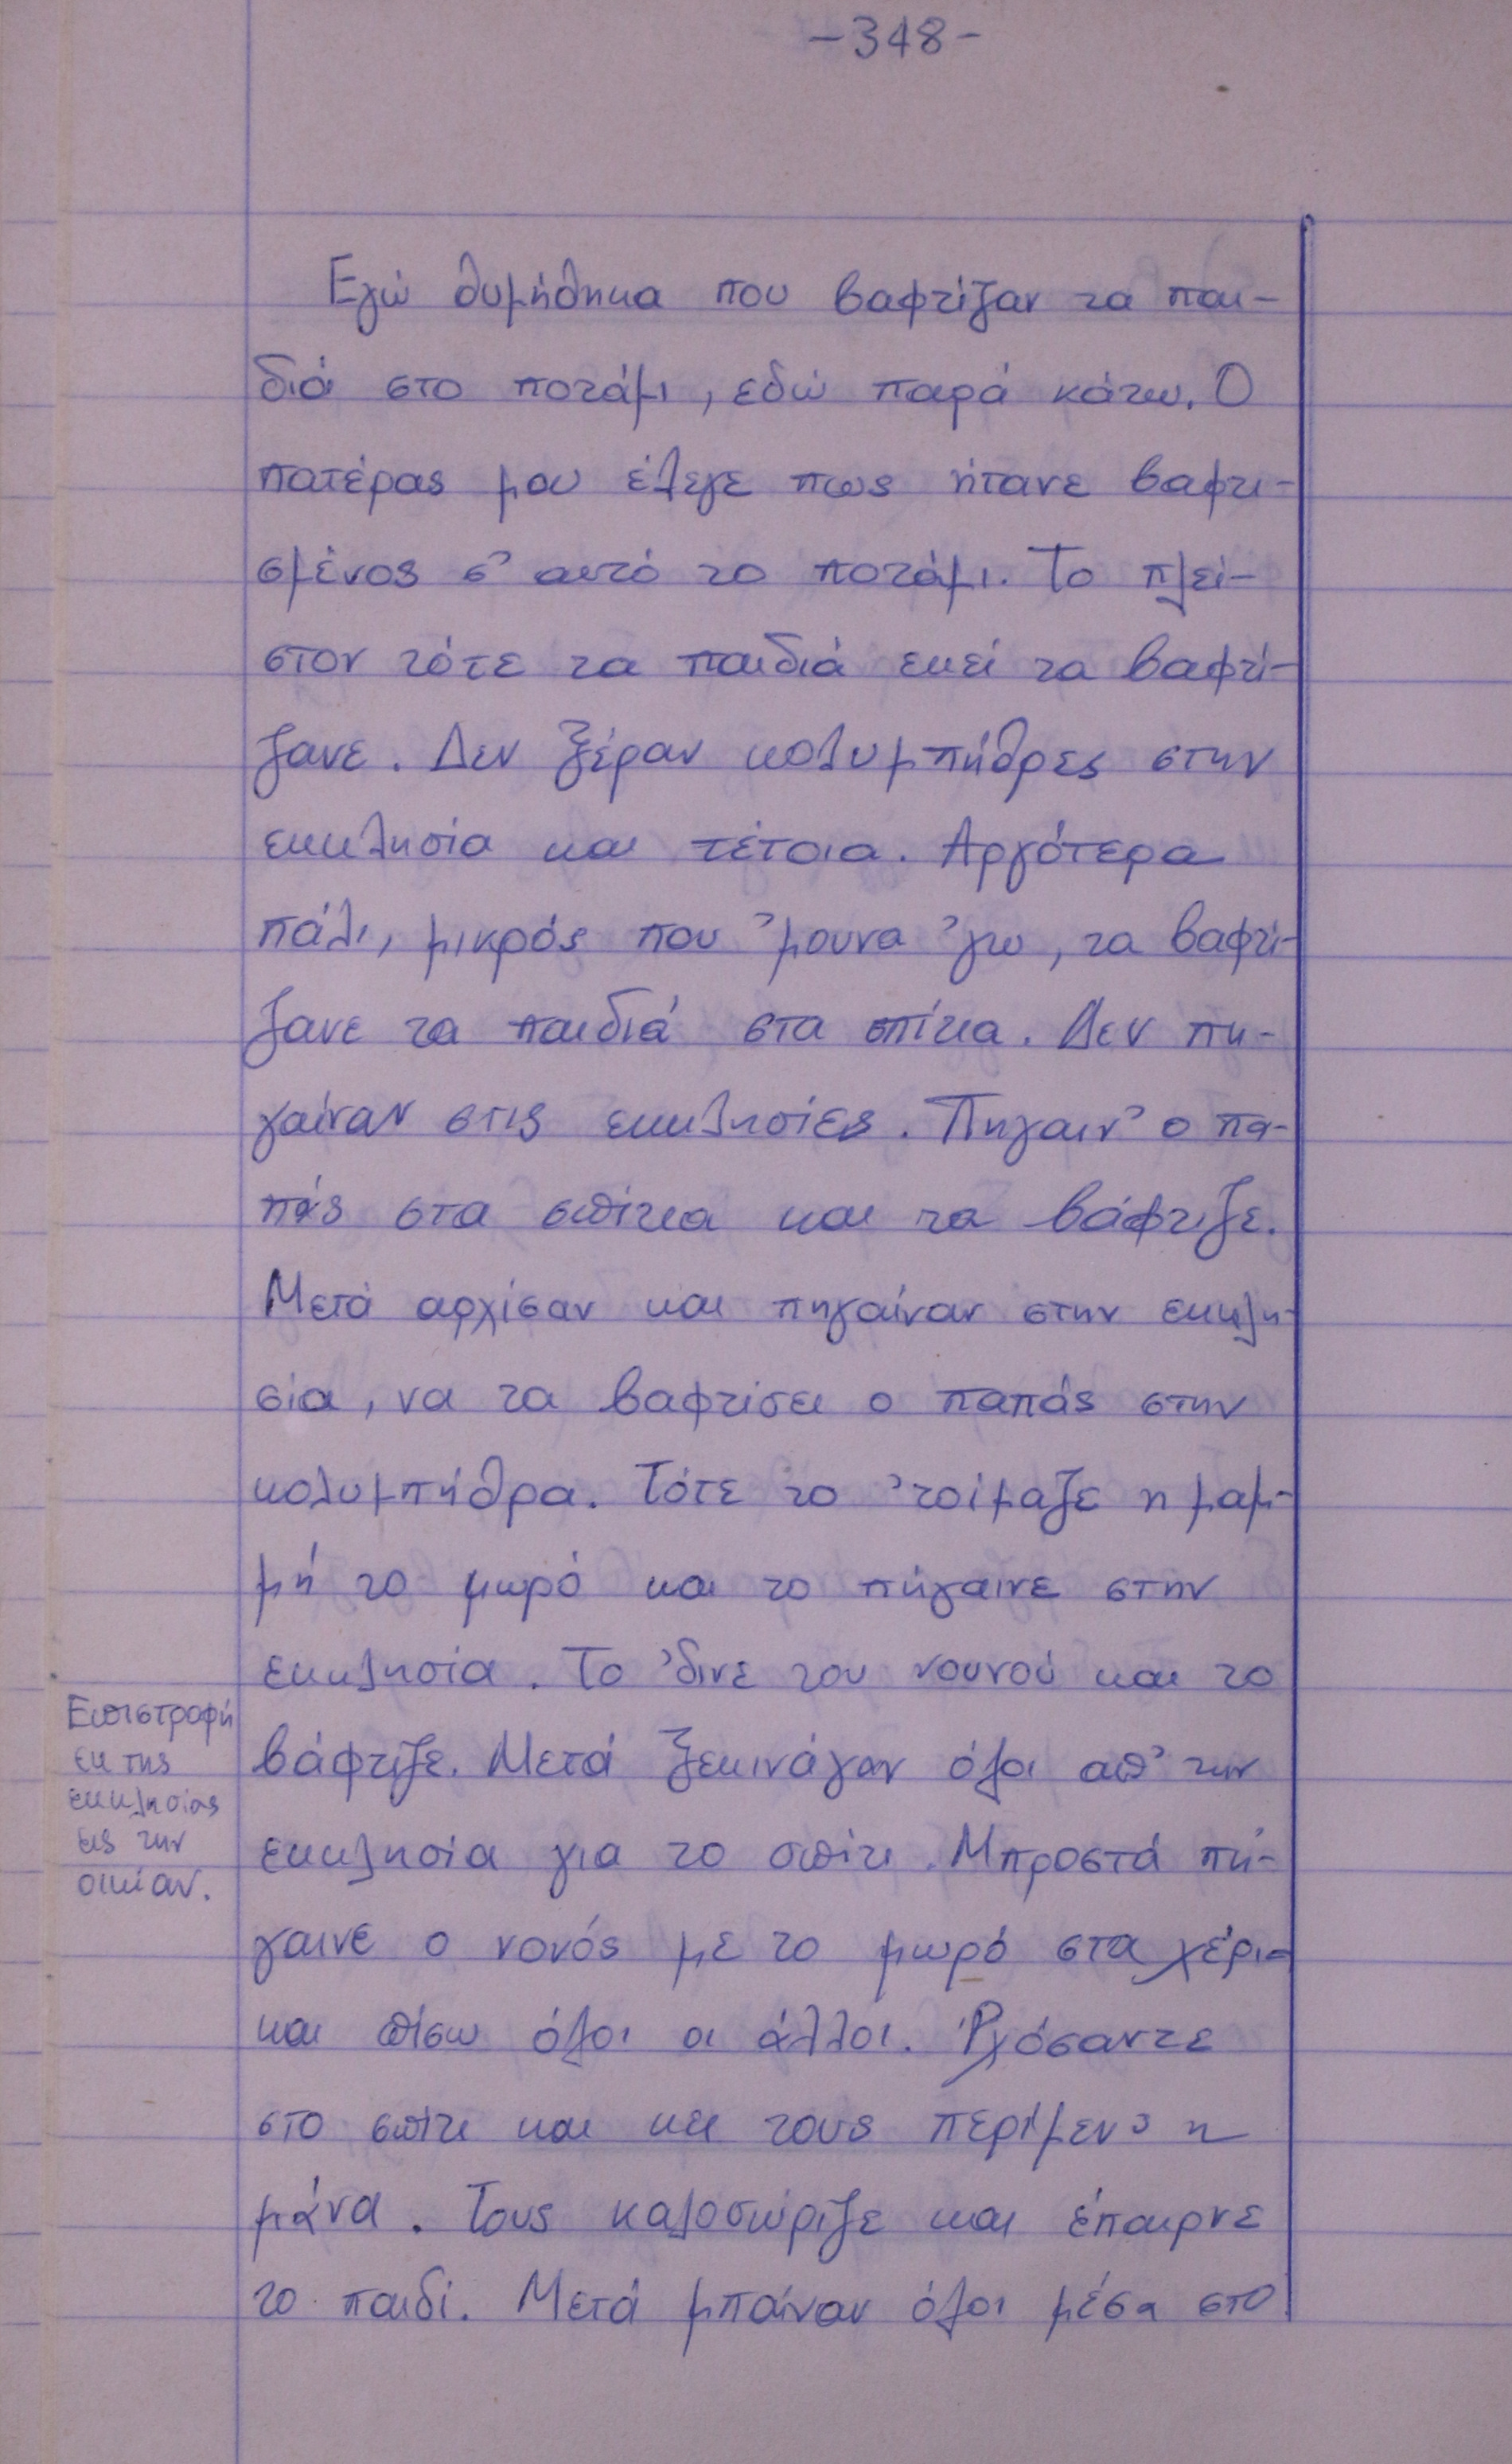 -348-
Εγώ θυμήθηκα που βαφτίζαν τα παι-
διά στο ποτάμι, εδώ παρά κάτω. Ο
πατέρας μου έλεγε πως ήτανε βαφτι-
σμένος σ' αυτό το ποτάμι. Το πλεί-
στον τότε τα παιδιά εκεί τα βαφτί-
ζανε. Δεν ξέραν κολυμπήθρες στην
εκκλησία και τέτοια. Αργότερα
πάλι, μικρός που 'μουνα 'γω, τα βαφτί-
ζανε τα παιδιά στα σπίτια. Δεν πη-
γαίναν στις εκκλησίες. Πηγαιν' ο πα-
πάς στα σπίτια και τα βάφτιζε.
Μετά αρχίσαν και πηγαίναν στην εκκλη-
σία, να τα βαφτίσει ο παπάς στην
κολυμπήθρα. Τότε το 'τοίμαζε η μαμ-
μή το μωρό και το πήγαινε στην
εκκλησία. Το 'δινε του νουνού και το
βάφτιζε. Μετά ξεκινάγαν όλοι απ' την
εκκλησία για το σπίτι. Μπροστά πή-
γαινε ο νονός με το μωρό στα χέρια
και πίσω όλοι οι άλλοι. 'Ρχόσαντε
στο σπίτι και κει τους περίμεν' η
μάνα. Τους καλοσώριζε και έπαιρνε
το παιδί. Μετά μπαίναν όλοι μέσα στο
Επιστροφή
εκ της
εκκλησίας
εις την
οικίαν.